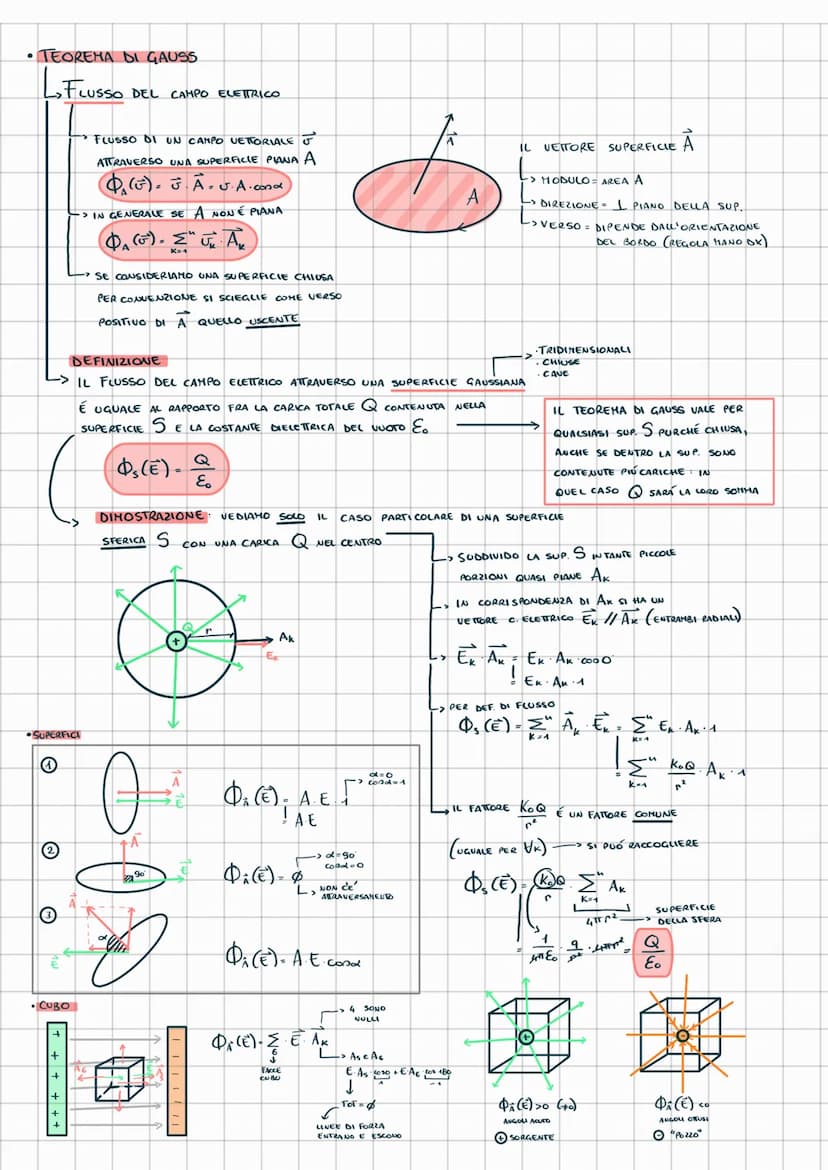 • TEOREMA DI GAUSS
↳ FLUSSO DEL CAMPO ELETTRICO
→ FLUSSO DI UN CAMPO VETTORIALE v⃗
ATTRAVERSO UNA SUPERFICIE PIANA A
Φ_A(v⃗) = v⃗ · A⃗ = v · A · cosα
→ IN GENERALE SE A NON É PIANA
Φ_A(v⃗) = Σⁿ_{K=1} v⃗_K · A⃗_K
→ SE CONSIDERIAMO UNA SUPERFICIE CHIUSA
PER CONVENZIONE SI SCIEGLIE COME VERSO
POSITIVO DI A⃗ QUELLO USCENTE
A⃗
A
IL VETTORE SUPERFICIE A⃗
→ MODULO = AREA A
→ DIREZIONE = ⊥ PIANO DELLA SUP.
→ VERSO = DIPENDE DALL'ORIENTAZIONE
DEL BORDO (REGOLA MANO DX)
DEFINIZIONE
→ IL FLUSSO DEL CAMPO ELETTRICO ATTRAVERSO UNA SUPERFICIE GAUSSIANA
→ · TRIDIMENSIONALI
· CHIUSE
· CAVE
É UGUALE AL RAPPORTO FRA LA CARICA TOTALE Q CONTENUTA NELLA
SUPERFICIE S E LA COSTANTE DIELETTRICA DEL VUOTO ε₀
Φ_S(E⃗) = Q/ε₀
IL TEOREMA DI GAUSS VALE PER
QUALSIASI SUP. S PURCHÉ CHIUSA,
ANCHE SE DENTRO LA SUP. SONO
CONTENUTE PIÚ CARICHE: IN
QUEL CASO Q SARÁ LA LORO SOMMA
DIMOSTRAZIONE: VEDIAMO SOLO IL CASO PARTICOLARE DI UNA SUPERFICIE
SFERICA S CON UNA CARICA Q NEL CENTRO
Q
r
+
A_K
E_K
→ SUDDIVIDO LA SUP. S IN TANTE PICCOLE
PORZIONI QUASI PIANE A_K
→ IN CORRISPONDENZA DI A_K SI HA UN
VETTORE C. ELETTRICO E⃗_K // A⃗_K (ENTRAMBI RADIALI)
→ E⃗_K · A⃗_K = E_K · A_K · cos0
= E_K · A_K · 1
→ PER DEF. DI FLUSSO
Φ_S(E⃗) = Σⁿ_{K=1} A⃗_K · E⃗_K = Σⁿ_{K=1} E_K · A_K · 1
= Σⁿ_{K=1} K₀Q/r² · A_K · 1
→ IL FATTORE K₀Q/r² É UN FATTORE COMUNE
(UGUALE PER ∀K) → SI PUÓ RACCOGLIERE
Φ_S(E⃗) = K₀Q/r · Σⁿ_{K=1} A_K
4πr² → SUPERFICIE
DELLA SFERA
= 1/4πε₀ · q/r² · 4πr² = Q/ε₀
• SUPERFICI
1
A⃗
E⃗
Φ_A(E⃗) = A · E · 1
→ α=0
cosα=1
= AE
2
A⃗
90
E⃗
Φ_A(E⃗) = ∅
→ α=90
cosα=0
→ NON C'É
ATTRAVERSAMENTO
3
A⃗
α
E⃗
Φ_A(E⃗) = A E · cosα
• CUBO
+ + + + + + +
− − − − − −
Φ_A(E⃗) = Σ E⃗ · A⃗_K
→ 4 SONO
NULLI
6
FACCE
CUBO
→ A₅ e A₆
E · A₅ · cos0 + E A₆ · cos180
−1
TOT = ∅
LINEE DI FORZA
ENTRANO E ESCONO
+
Φ_A(E⃗) > 0 (≠0)
ANGOLI ACUTO
⊕ SORGENTE
−
Φ_A(E⃗) <0
ANGOLI OTTUSI
⊖ "POZZO"